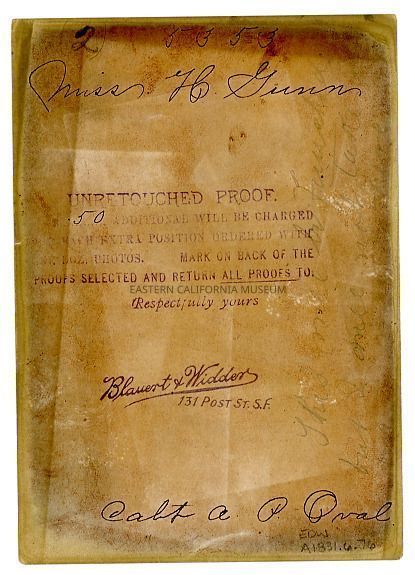 2 5353
Miss H. Gunn
UNRETOUCHED PROOF.
.50 ADDITIONAL WILL BE CHARGED
EACH EXTRA POSITION ORDERED WITH
DOZ. PHOTOS. MARK ON BACK OF THE
PROOFS SELECTED AND RETURN ALL PROOFS TO:
EASTERN CALIFORNIA MUSEUM
Respectfully yours
Blauert & Widder
131 POST ST. S.F.
Cabt A. P. Oval
EDW
A1331.6.76